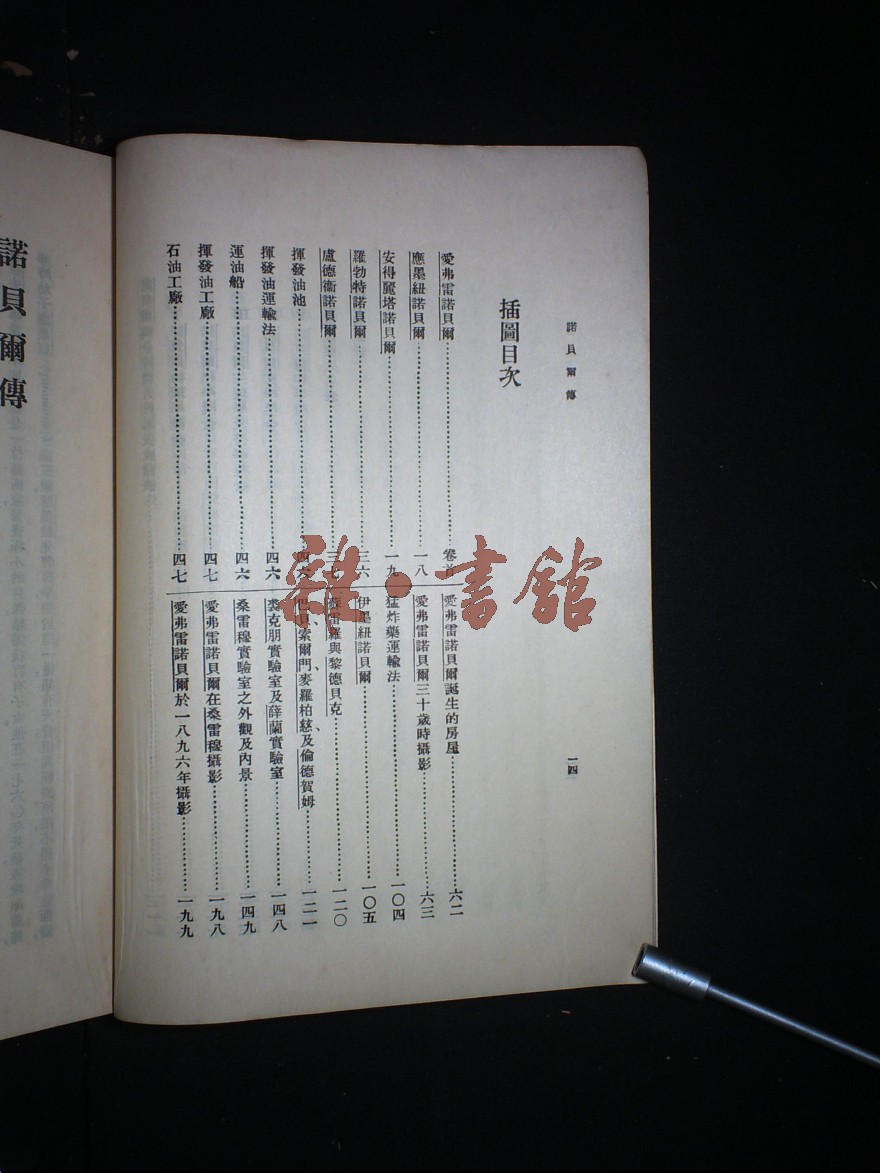 諾貝爾傳
一四
插圖目次
愛弗雷諾貝爾……卷首
應墨紐諾貝爾……一八
安得麗塔諾貝爾……一九
羅勃特諾貝爾……三六
盧德衞諾貝爾……三七
揮發油池……四六
揮發油運輸法……四六
運油船……四六
揮發油工廠……四七
石油工廠……四七
愛弗雷諾貝爾誕生的房屋……六二
愛弗雷諾貝爾三十歲時攝影……六三
猛炸藥運輸法……一〇四
伊墨紐諾貝爾……一〇五
雷羅與黎德貝克……一二〇
巴貝、索爾門、麥羅柏慈、及倫德賀姆……一二一
裘克朋實驗室及薛蘭實驗室……一四八
桑雷穆實驗室之外觀及內景……一四九
愛弗雷諾貝爾在桑雷穆攝影……一九八
愛弗雷諾貝爾於一八九六年攝影……一九九
諾貝爾傳
雜·書館